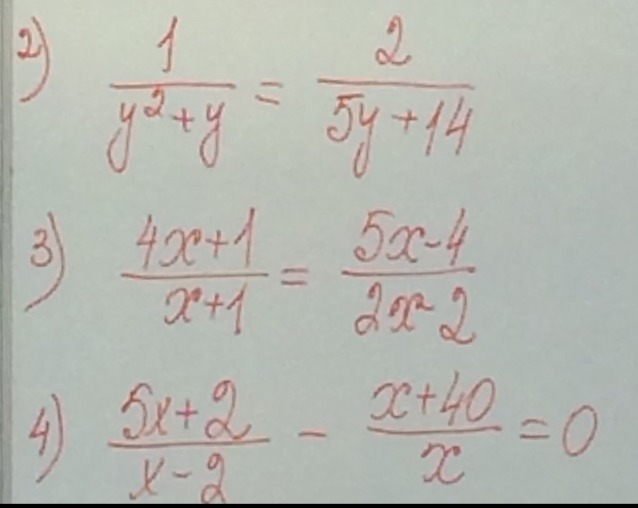 2) 1/(y²+y) = 2/(5y+14)
3) (4x+1)/(x+1) = (5x-4)/(2x-2)
4) (5x+2)/(x-2) - (x+40)/x = 0